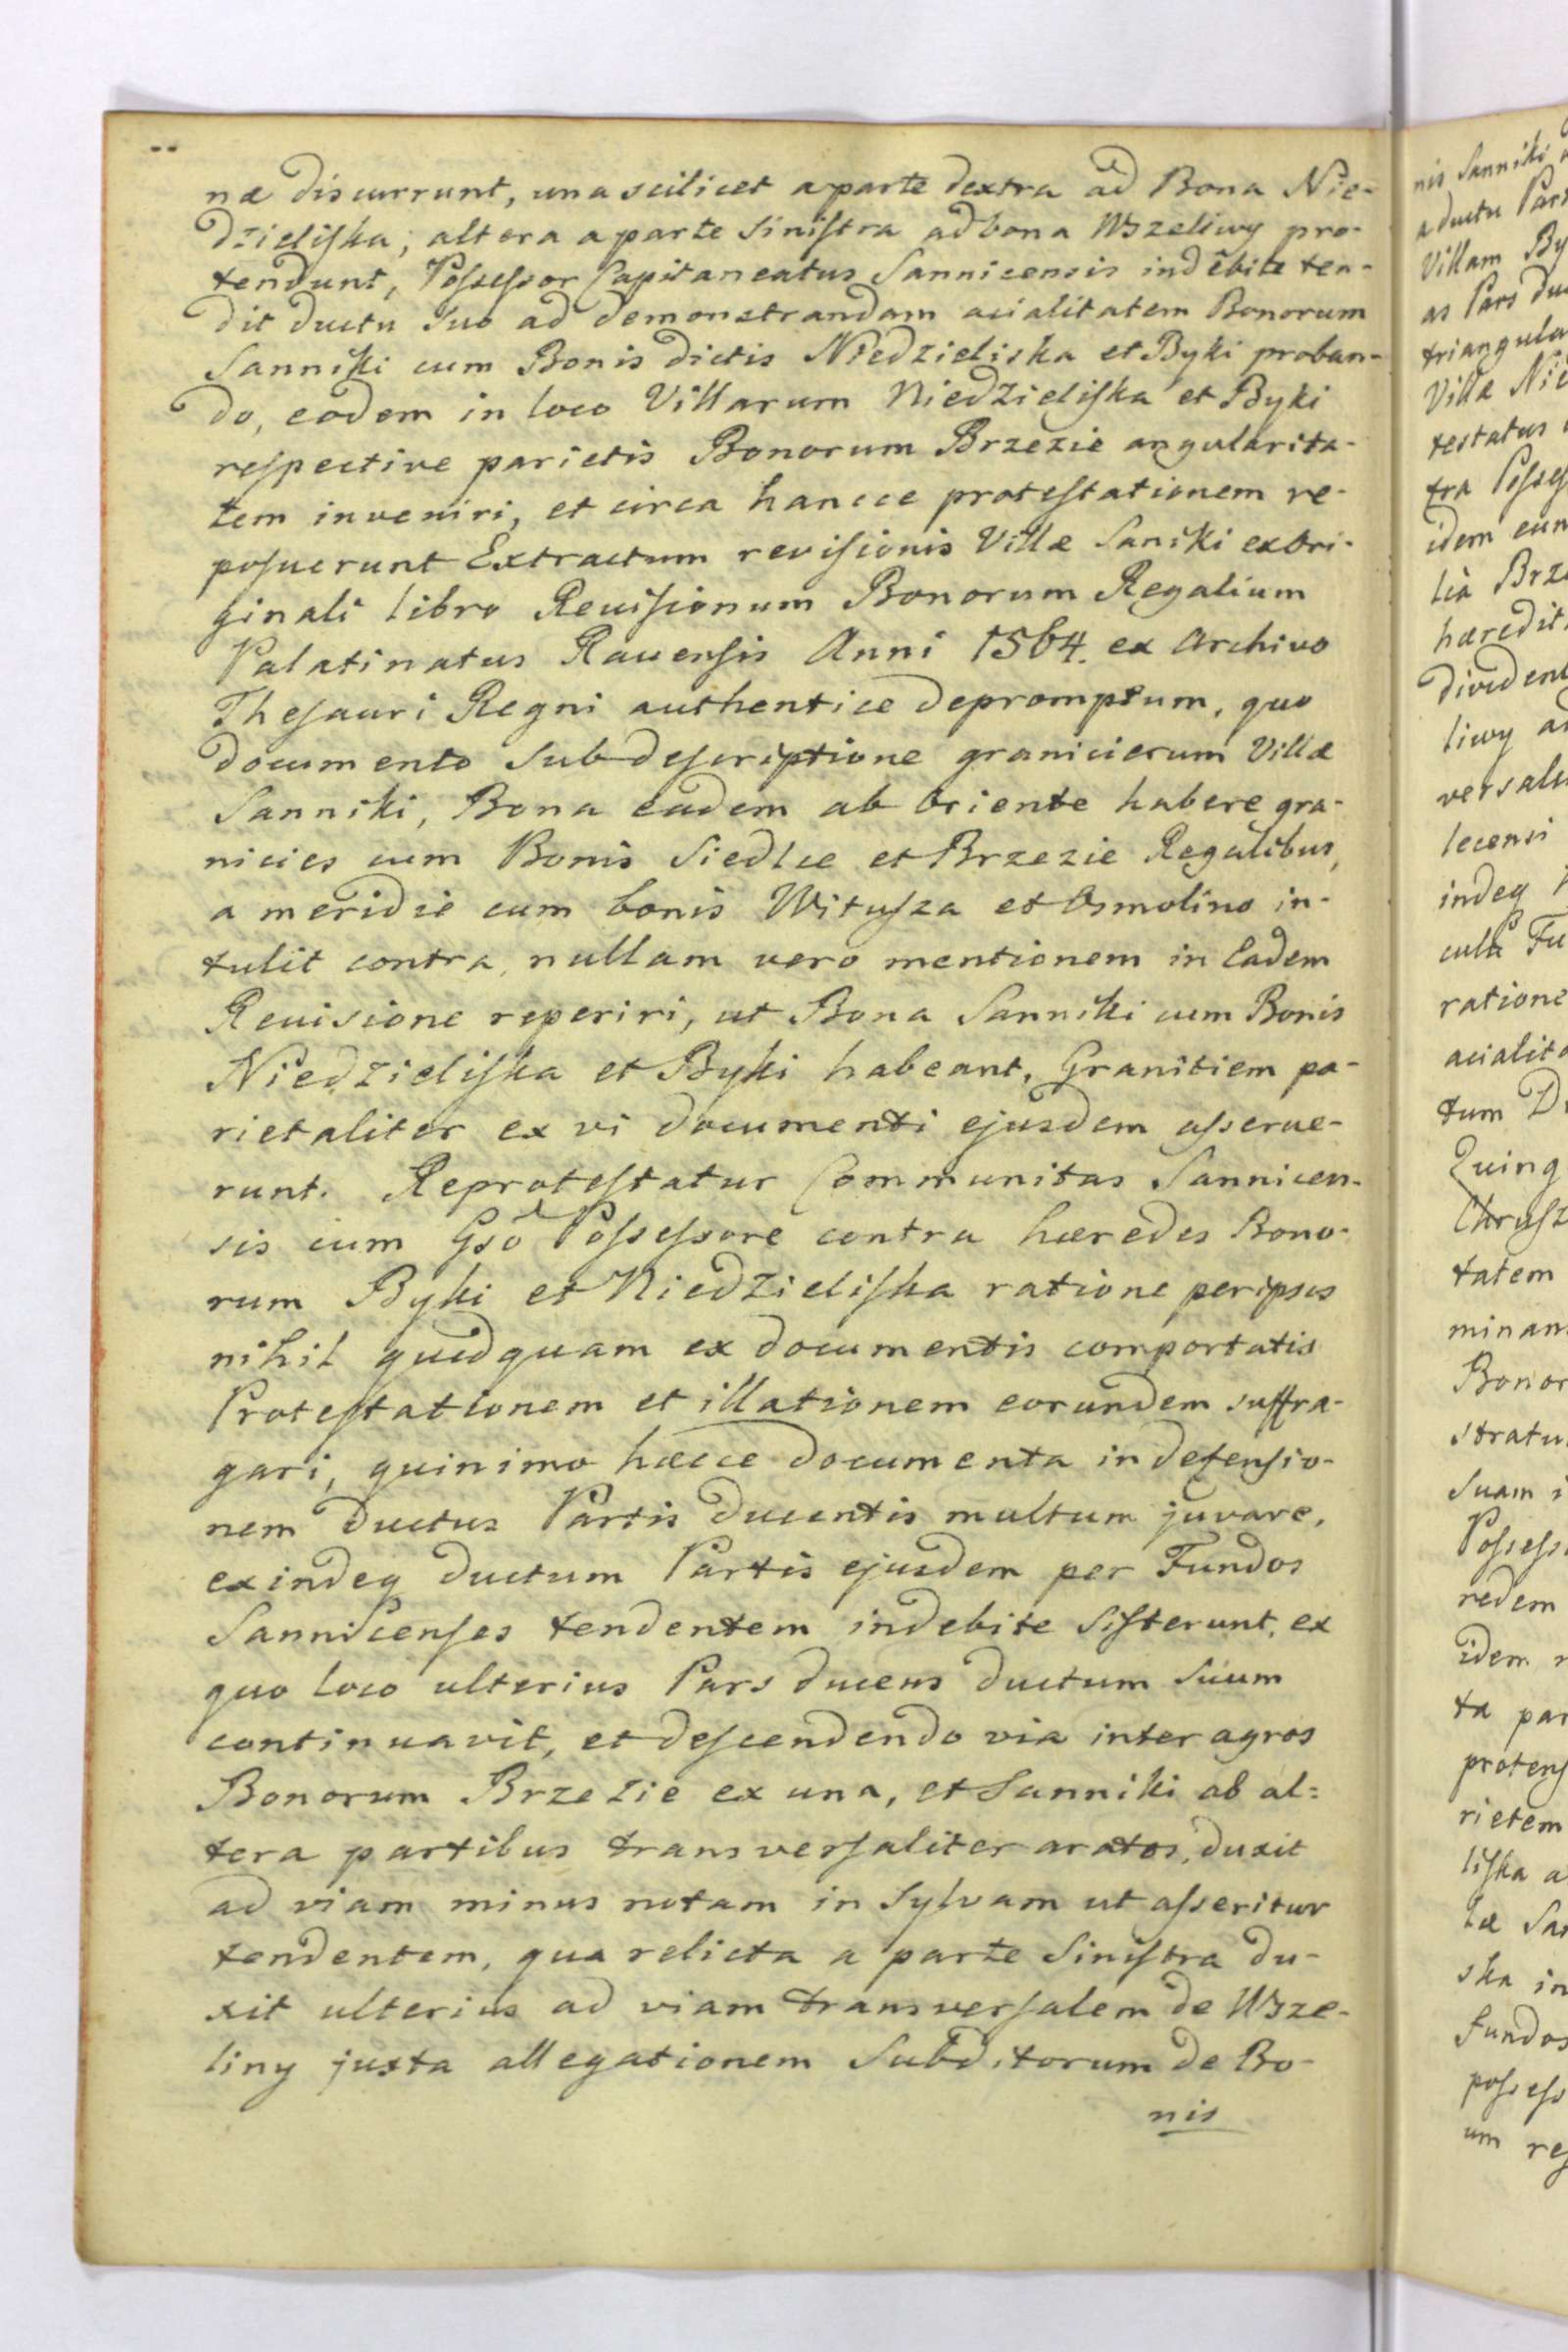 næ discurrunt, una scilicet a parte dextra ad Bona Nie-
dzieliſka; altera a parte Siniſtra ad bona Wszeliwy pro-
tendunt, Poſseſsor Capitaneatus Sannicensis indebite ten-
dit ductu Suo ad demonstrandam acialitatem Bonorum
Sanniki cum Bonis dictis Niedzieliska et Byki proban-
do, eodem in loco Villarum Niedzieliſka et Byki
reſpective parietis Bonorum Brzezie angularita-
tem inveniri, et circa hancce proteſtationem re-
poſuerunt Extractum reviſionis Villæ Saniki ex Ori-
ginali libro Reuiſionum Bonorum Regalium
Palatinatus Rauenſis Anni 1564. ex Archivo
Theſauri Regni authentice depromptum, quo
documento Sub deſcriptione granicierum Villæ
Sanniki, Bona eadem ab Oriente habere gra-
nicies cum Bonis Siedlce et Brzezie Regalibus,
a meridie cum bonis Wituſza et Osmolino in-
tulit contra, nullam vero mentionem in Eadem
Reuisione reperiri, ut Bona Sanniki cum Bonis
Niedzieliſka et Byki habeant, Granitiem pa-
rietaliter ex vi documenti ejusdem aſserue-
runt. Reproteſtatur Communitas Sannicen-
sis cum Gso Poſseſsore contra hæredes Bono-
rum Byki et Niedzieliſka ratione per ipsos
nihil quidquam ex documentis comportatis
Proteſtationem et illationem eorundem suffra-
gari, quinimo hæcce documenta in defenſio-
nem ductus Partis ducentis multum juvare,
exindeq ductum Partis ejusdem per Fundos
Sannicenſes tendentem indebite Siſterunt, ex
quo loco ulterius Pars ducens ductum Suum
continuavit, et deſcendendo via inter agros
Bonorum Brzezie ex una, et Sanniki ab al=
tera partibus transverſaliter aratos, duxit
ad viam minus notam in Sylvam ut aſseritur
tendentem, qua relicta a parte Siniſtra du-
xit ulterius ad viam transverſalem de Wsze-
liny juxta allegationem Subditorum de Bo-
nis